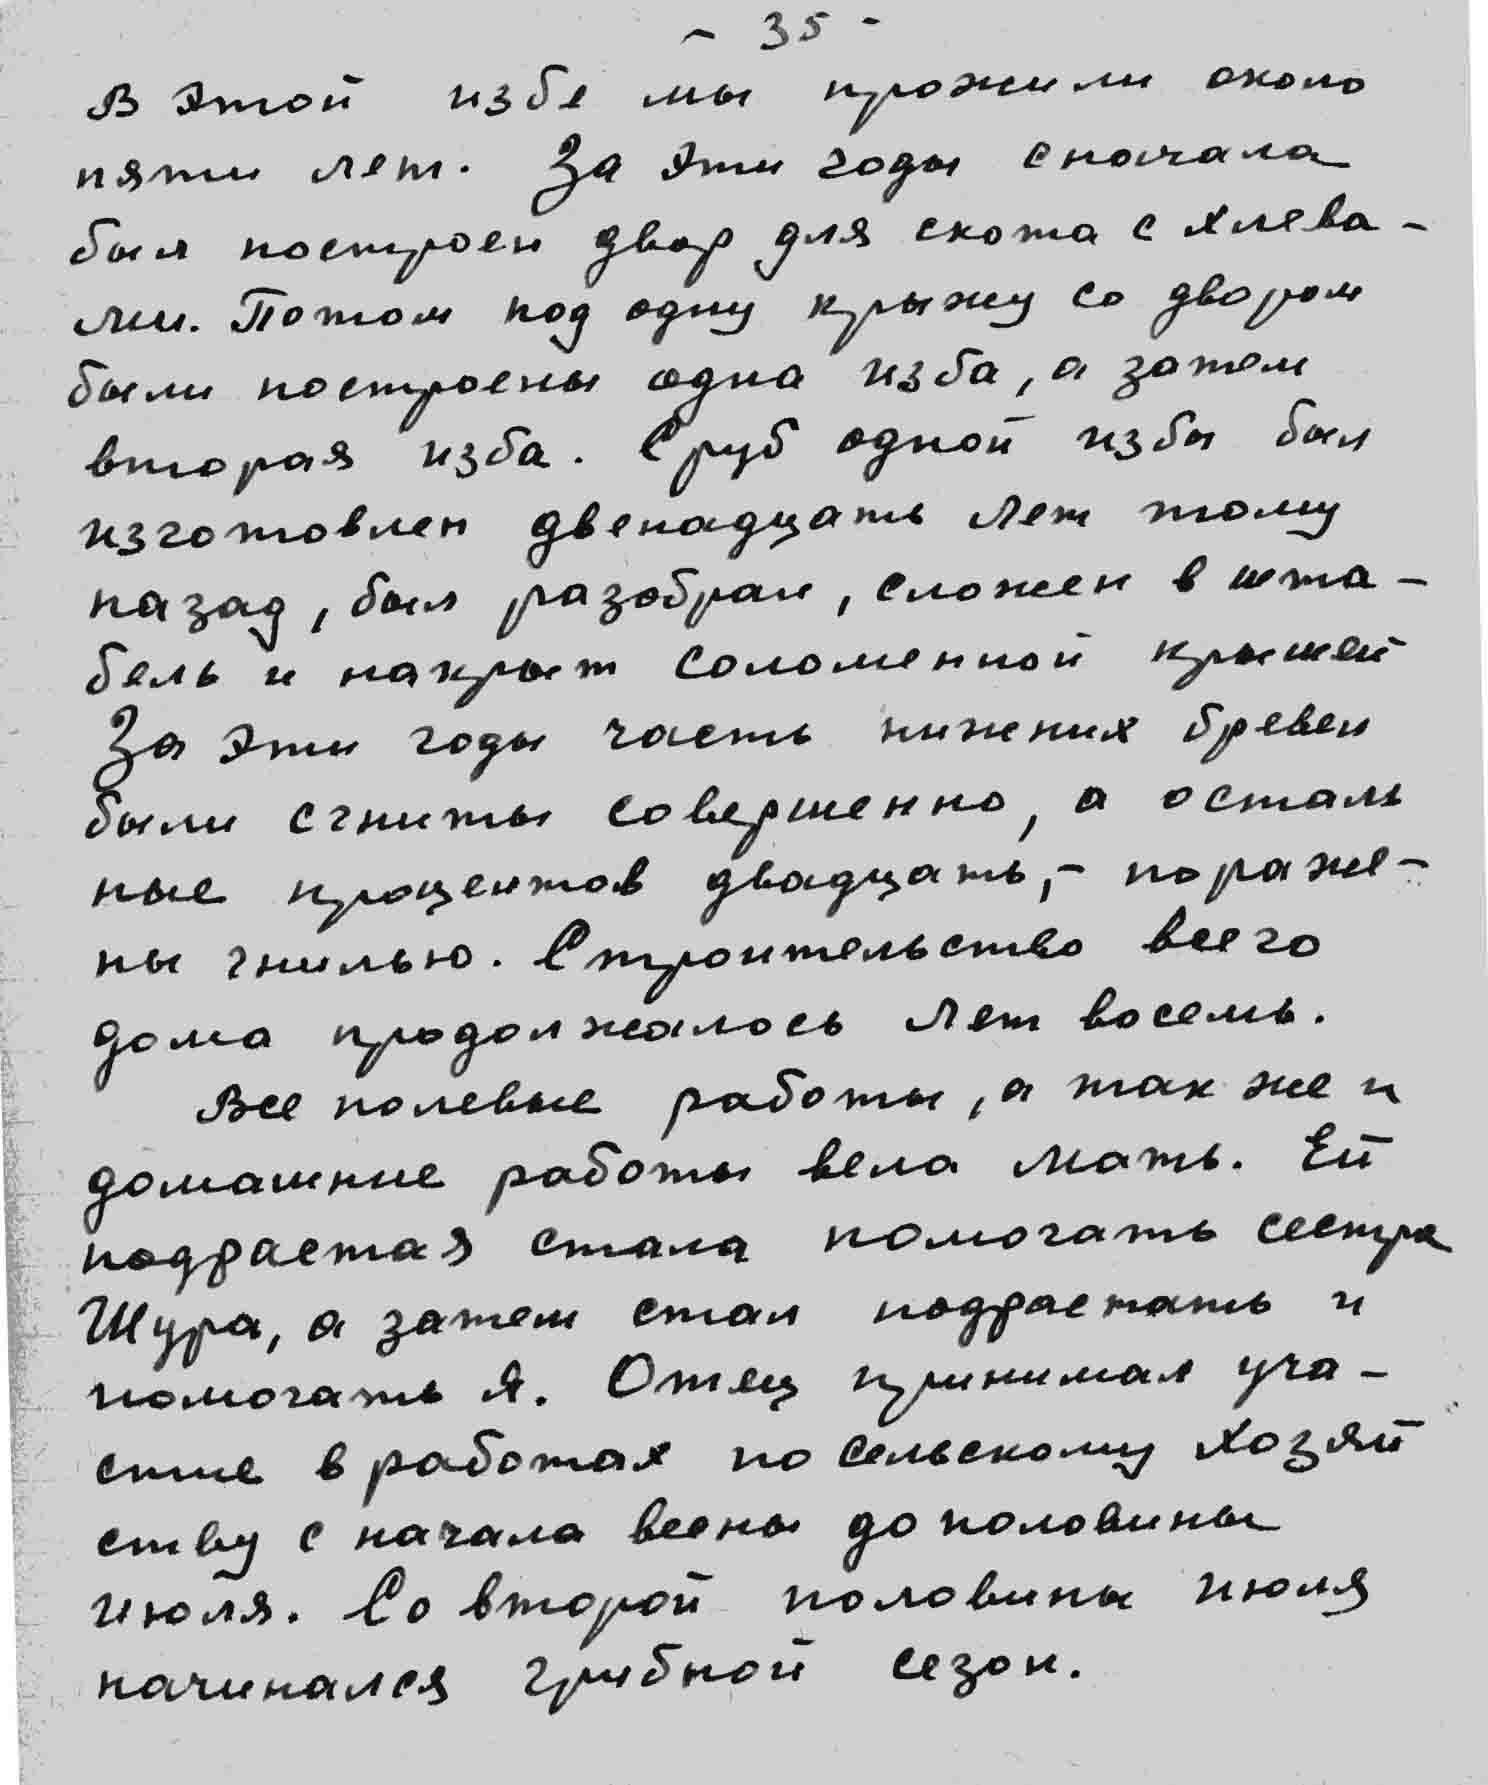 - 35 -
В этой избе мы прожили около
пяти лет. За эти годы сначала
был построен двор для скота с хлева-
ми. Потом под одну крыжу со двором
были построены одна изба, а затем
вторая изба. Сруб одной избы был
изготовлен двенадцать лет тому
назад, был разобран, сложен в шта-
бель и накрыт соломенной крышей
За эти годы часть нижних бревен
были сгниты совершенно, а осталь
ные процентов двадцать,- пораже-
ны гнилью. Строительство всего
дома продолжалось лет восемь.
Все полевые работы, а так же и
домашние работы вела мать. Ей
подрастая стала помогать сестра
Шура, а затем стал подрастать и
помогать я. Отец принимал уча-
стие в работах по сельскому хозяй
ству с начала весны до половины
июля. Со второй половины июля
начинался грибной сезон.